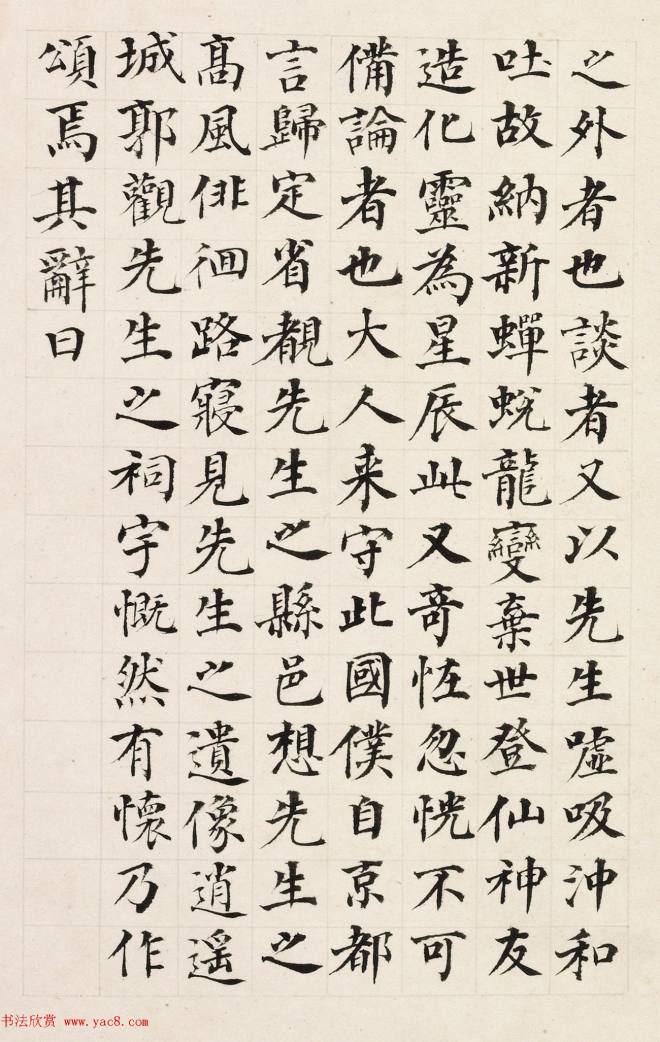 之外者也談者又以先生噓吸沖和
吐故納新蟬蛻龍變棄世登仙神友
造化靈為星辰此又奇恠忽恍不可
備論者也大人来守此國僕自京都
言歸定省覩先生之縣邑想先生之
高風俳徊路寢見先生之遺像逍遥
城郭觀先生之祠宇慨然有懷乃作
頌焉其辭曰
书法欣赏 www.yac8.com